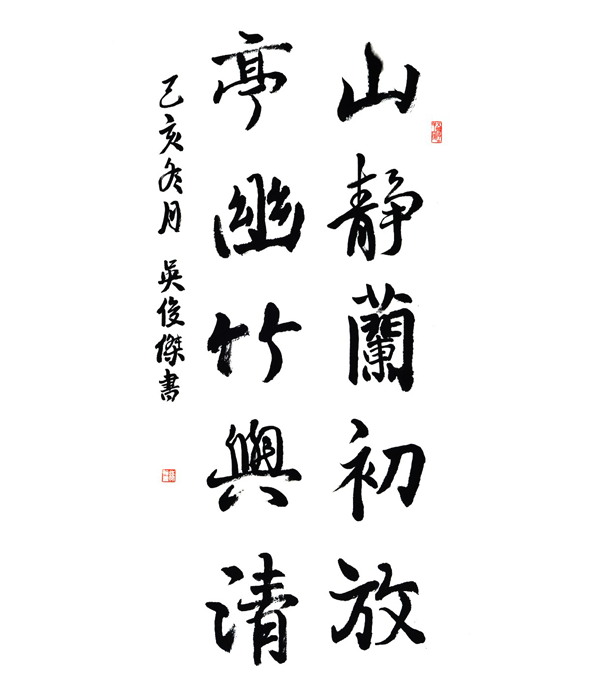 山静蘭初放
亭幽竹興清
己亥冬月 吴俊傑書